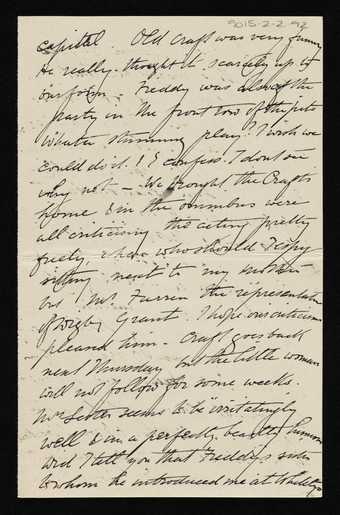 9015-2-2 92
capital Old Craft was very funny
He really thought it scarcely up to
our form. Freddy was also at the
party in the front row of the pits
What a stunning play! I wish we
could do it! & I confess I don't see
why not – We brought the Crafts
home & in the omnibus were
all criticising the acting pretty
freely when who should I espy
sitting next to my mother
but Mr Farren the representative
of Digby Grant. I hope our criticism
pleased him – Craft goes back
next Thursday but the little woman
will not follow for some weeks.
Mrs seems to be irritatingly
well & in a perfectly beastly humour
Did I tell you that Freddy's sister
to whom he introduced me at